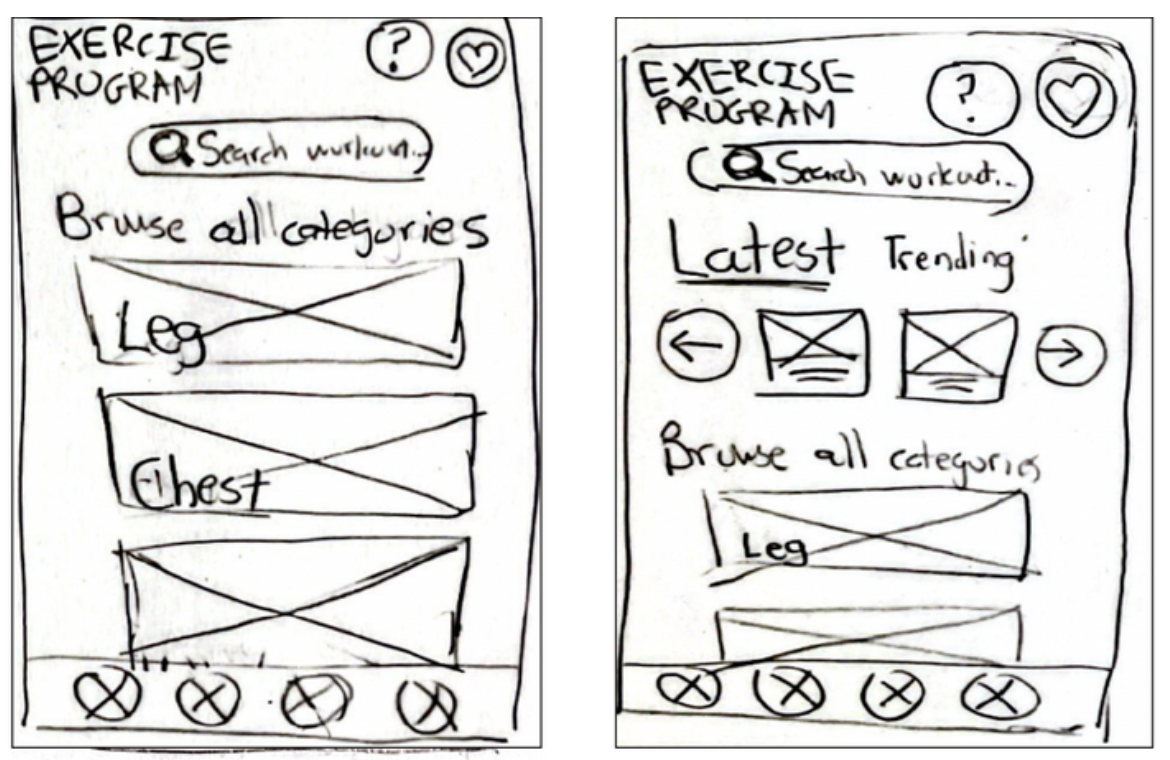 EXERCISE
PROGRAM
?
Search workout...
Browse all categories
Leg
Chest
EXERCISE
PROGRAM
?
Search workout...
Latest Trending
Browse all categories
Leg